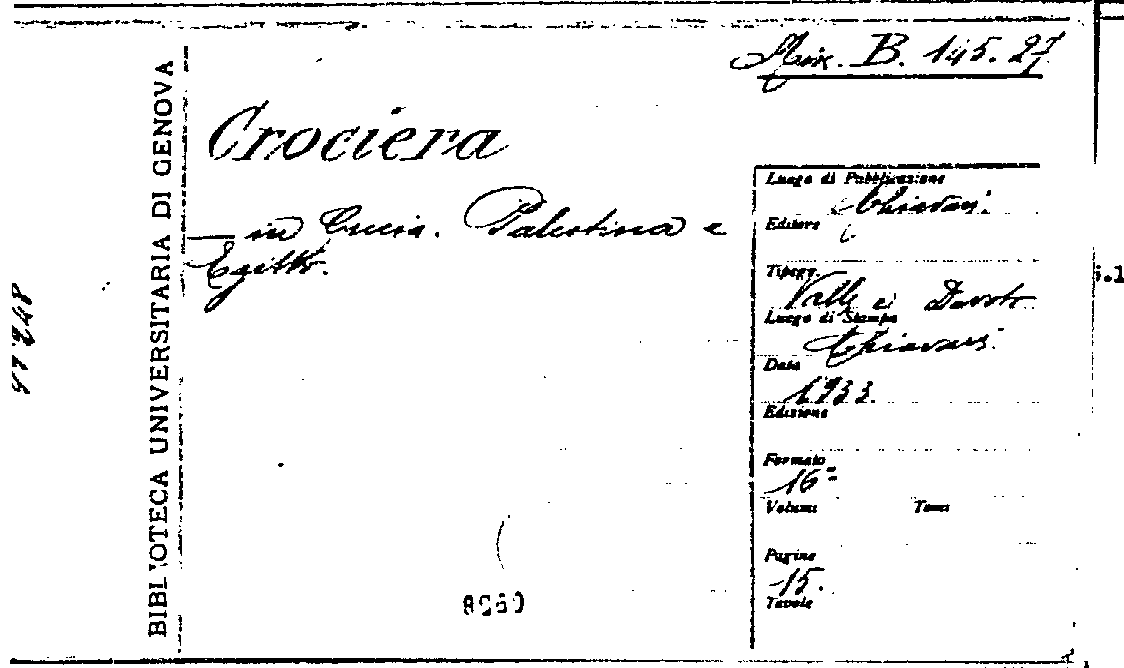 Misc. B. 145.27
BIBLIOTECA UNIVERSITARIA DI GENOVA
Crociera
— in Grecia. Palestina e
Egitto.
Luogo di Pubblicazione
Chiavari.
Editore
Tipogr.
Valle e Devoto
Luogo di Stampa
Chiavari.
Data
1933.
Edizione
Formato
16º
Volumi Tomi
Pagine
15.
Tavole